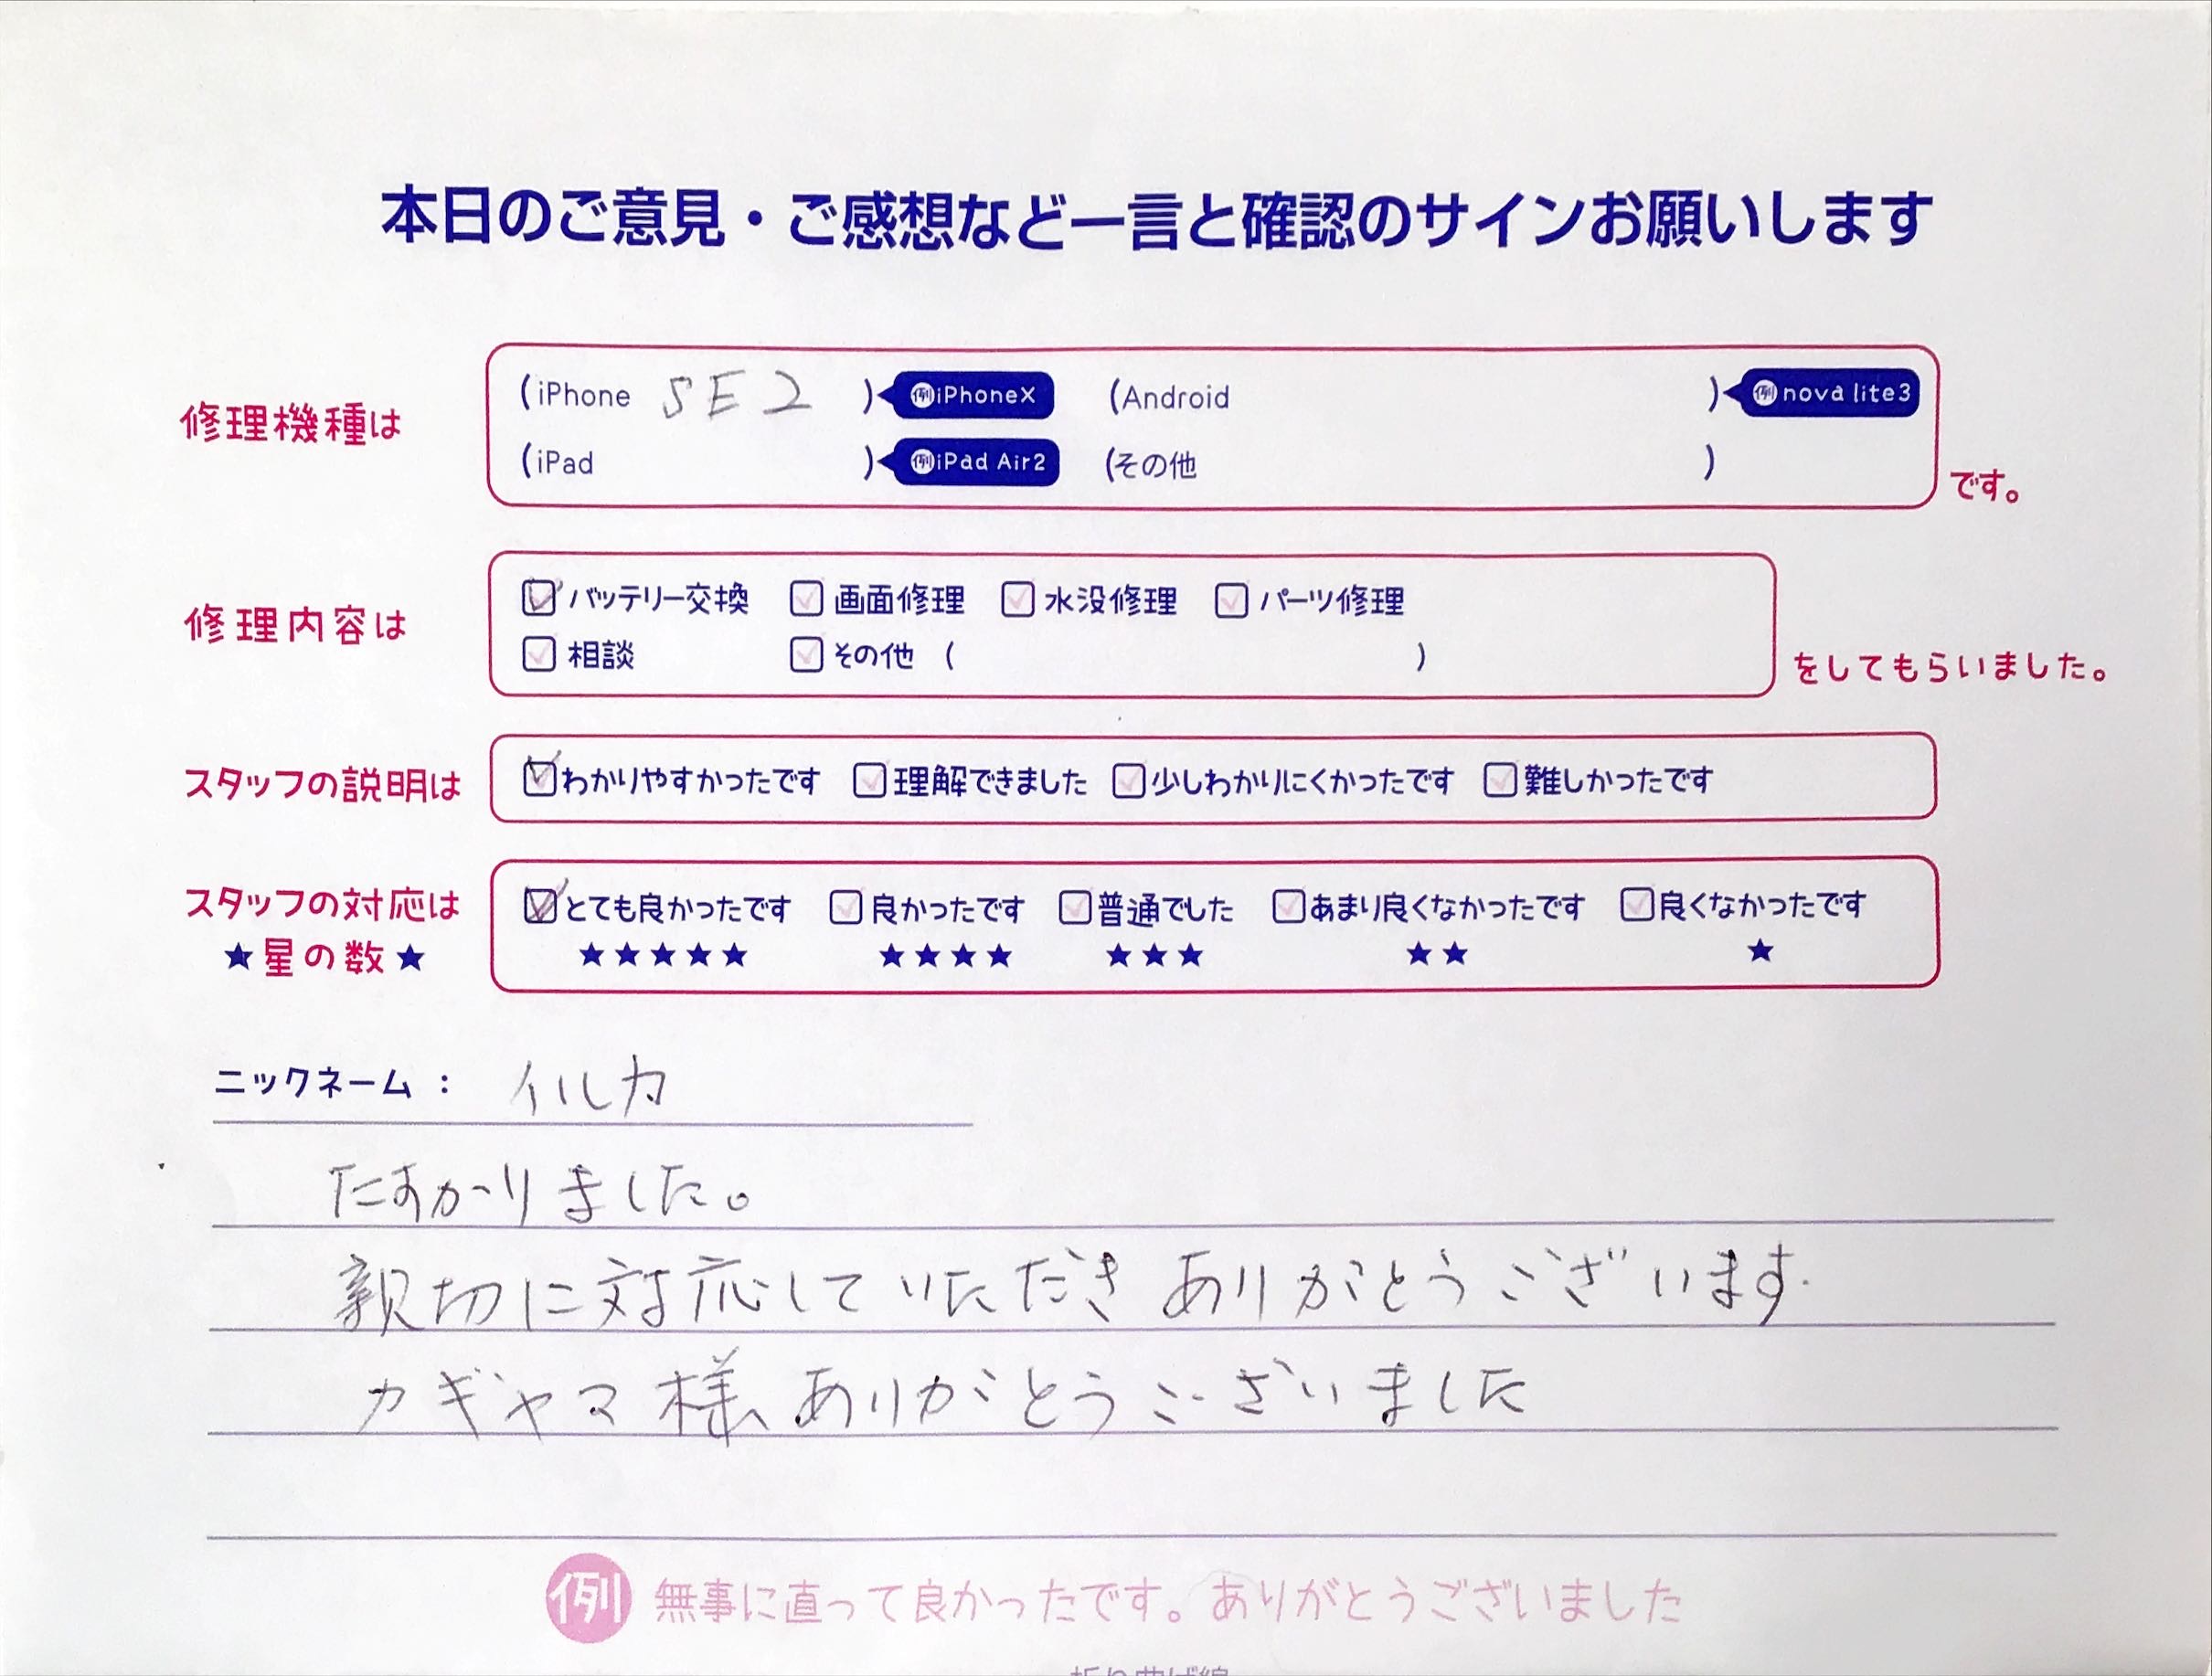 本日のご意見・ご感想など一言と確認のサインお願いします
修理機種は
(iPhone SE2 ) 例iPhoneX (Android ) 例nova lite3
(iPad ) 例iPad Air2 (その他 ) です。
修理内容は
☑バッテリー交換 ☐画面修理 ☐水没修理 ☐パーツ修理
☐相談 ☐その他 ( ) をしてもらいました。
スタッフの説明は ☑わかりやすかったです ☐理解できました ☐少しわかりにくかったです ☐難しかったです
スタッフの対応は ☑とても良かったです ☐良かったです ☐普通でした ☐あまり良くなかったです ☐良くなかったです
★星の数★ ★★★★★ ★★★★ ★★★ ★★ ★
ニックネーム : イルカ
たすかりました。
親切に対応していただきありがとうございます.
カギヤマ様、ありがとうございました
例 無事に直って良かったです。ありがとうございました
折り曲げ線